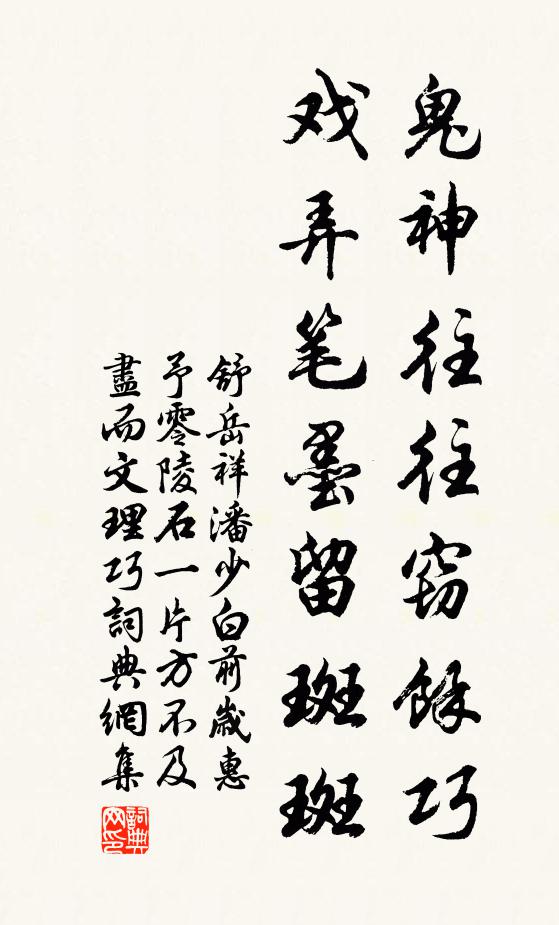 鬼神往往窃餘巧
戏弄笔墨留斑斑
舒岳祥潘少白前歲惠
予零陵石一片方不及
盡而文理巧詞典網集
詞典网印